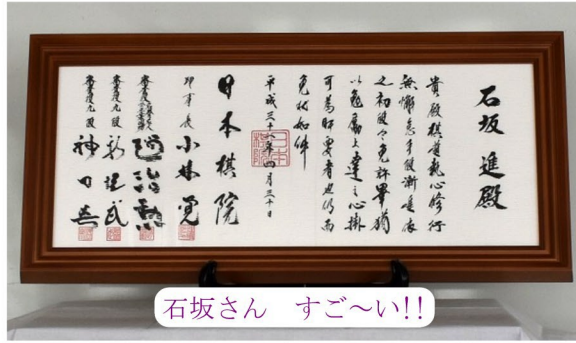 石坂 進殿
貴殿棋道執心修行
無懈怠手段漸進依
之初段令免許畢猶
以勉励上達之心掛
可為肝要者也仍而
免状如件
平成 年四月三十日
日本棋院
理事長 小林覚
趙治勲
審査役九段 新垣武
審査役九段 神田英
石坂さん すご～い!!